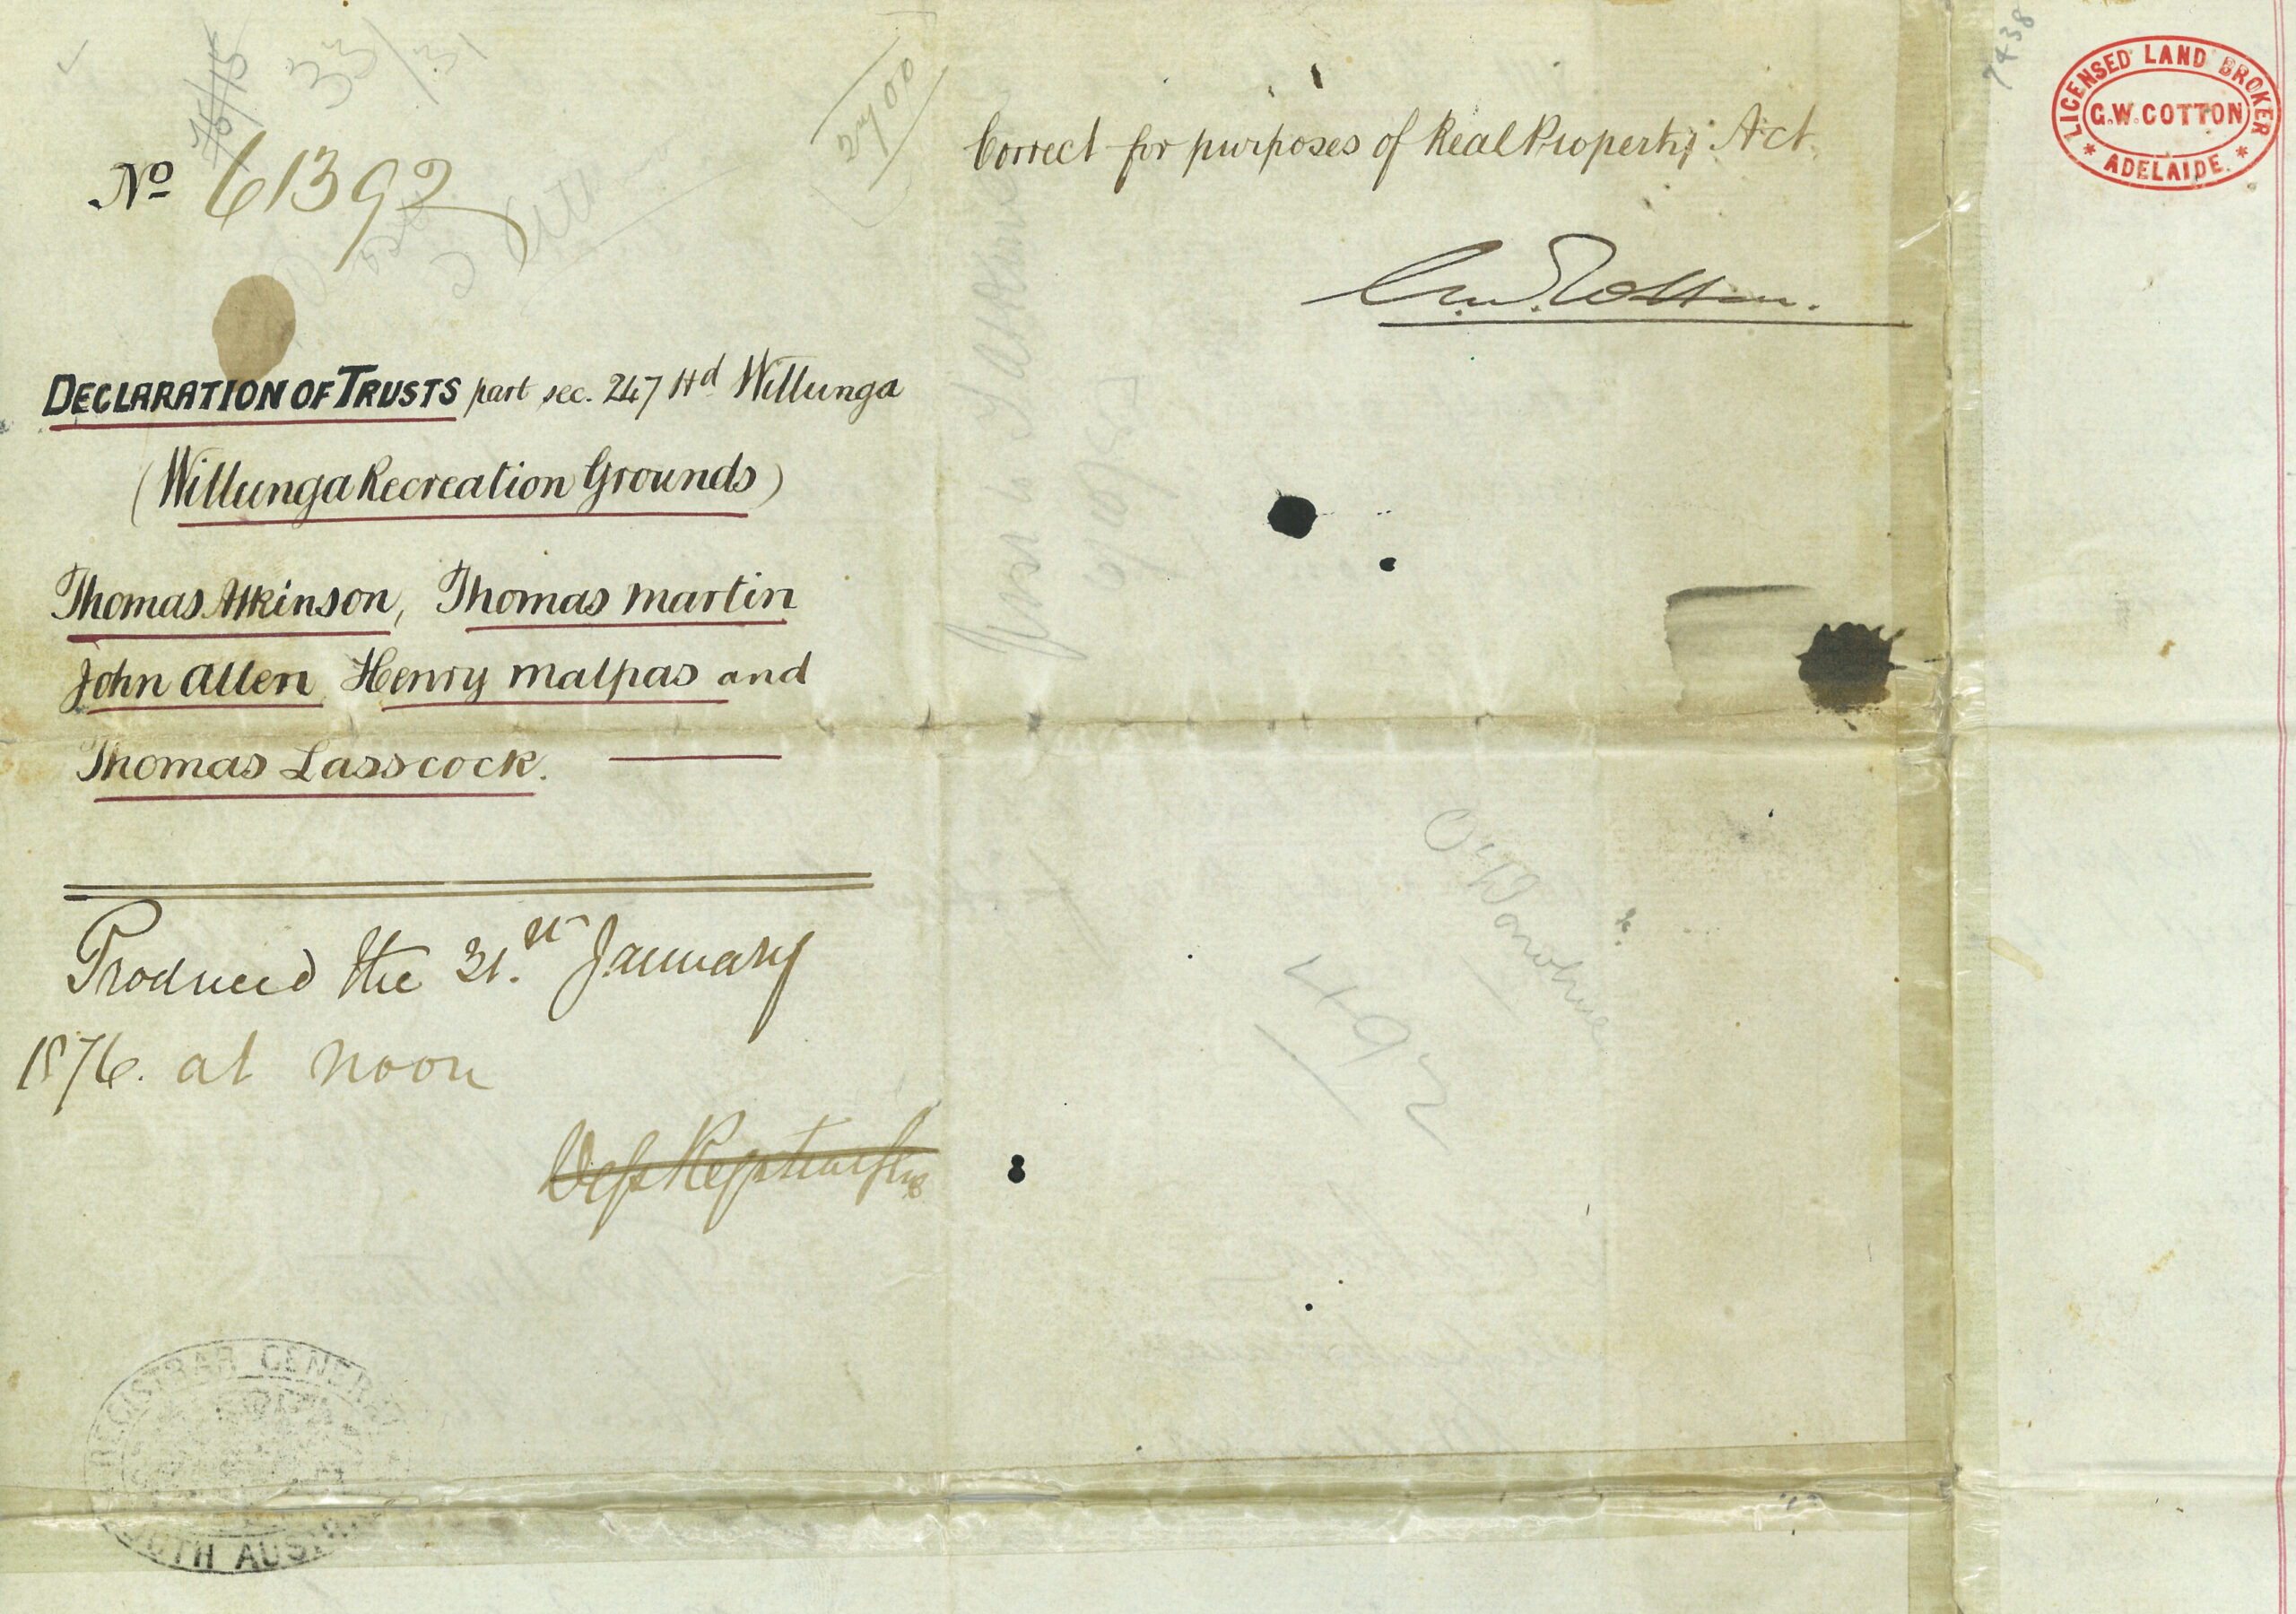 No 61392
75/75
33/31
2700
DECLARATION OF TRUSTS part sec. 247 Hd Willunga
(Willunga Recreation Grounds)
Thomas Atkinson, Thomas Martin
John Allen Henry Malpas and
Thomas Lasscock.
Produced the 21.st January
1876. at noon
REGISTRAR GENERAL
SOUTH AUSTRALIA
Correct for purposes of Real Property Act.
G.W. Cotton.
7438
LICENSED LAND BROKER
G.W. COTTON
* ADELAIDE. *